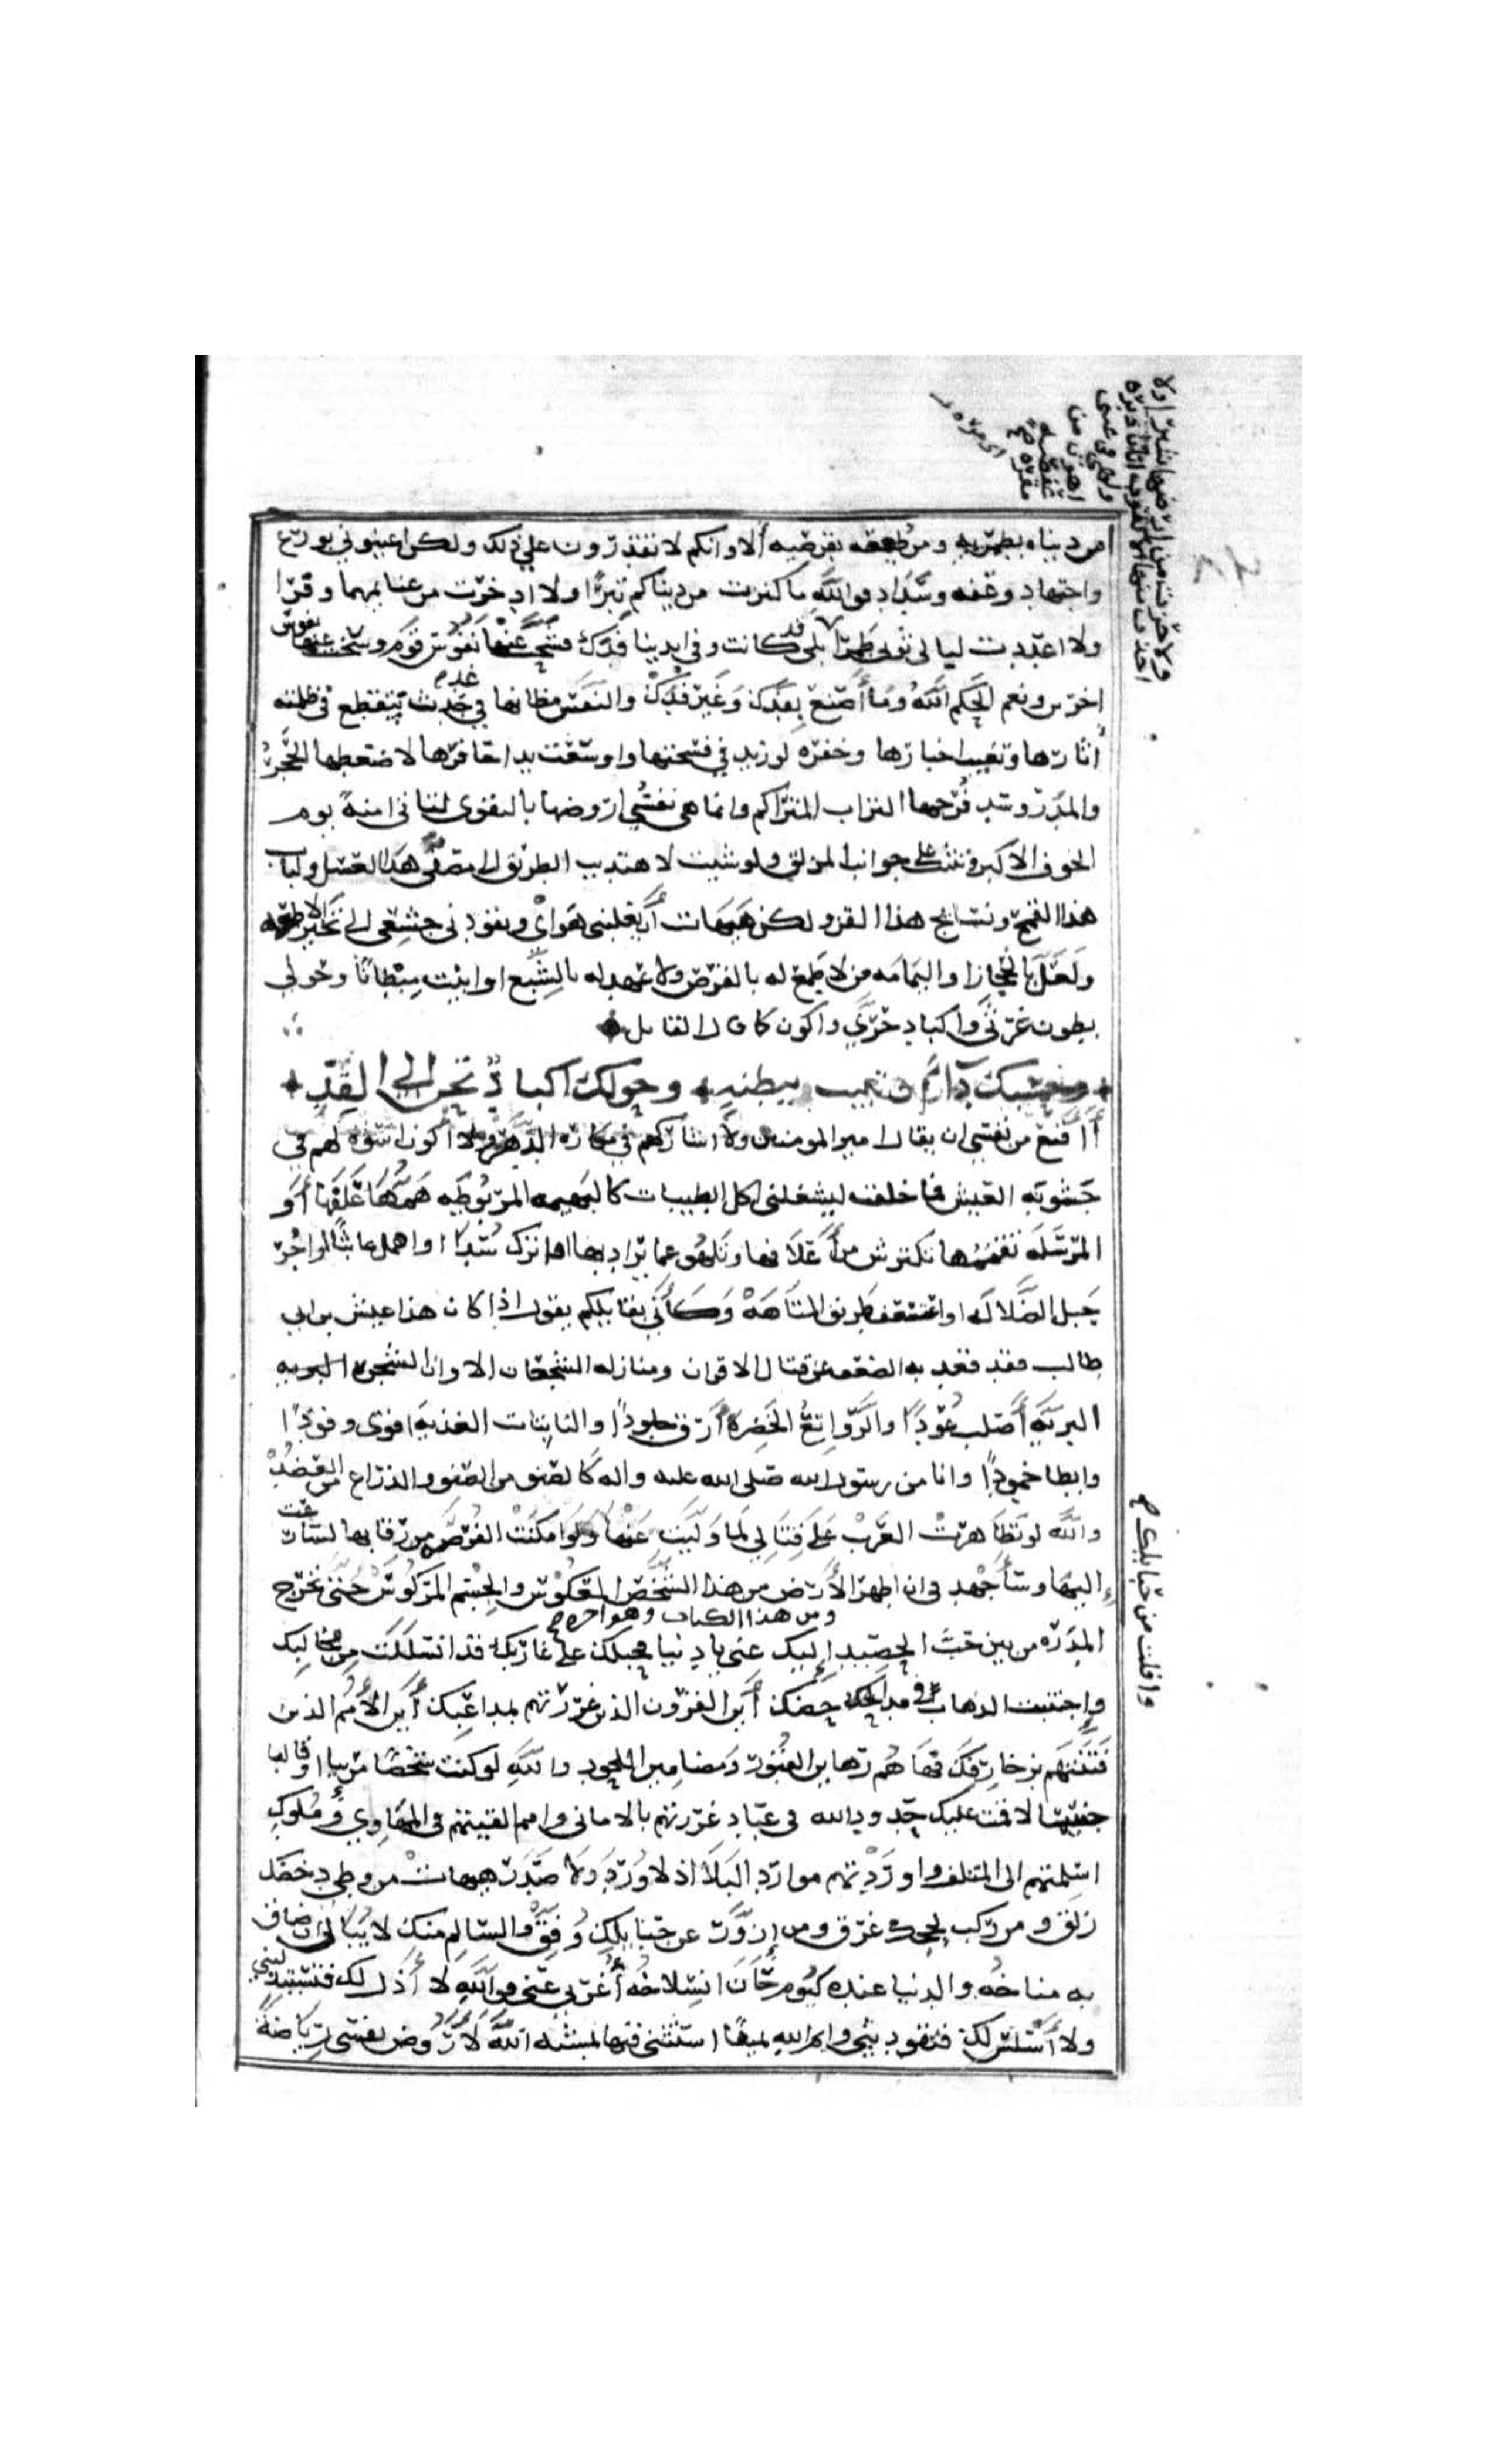 من دنياه بطمريه ومن طعمه بقرصيه ألا وانكم لا تقدرون على ذلك ولكن اعينوني بورع
واجتهاد وعفه وسداد فوالله ما كنزت من دنياكم تبرًا ولا ادخرت من غنايمها وفرا
ولا اعددت لبالي ثوبي طمرا بلى قد كانت وفي ايدينا فدك فشحت عنها نفوس قوم وسخت عنها نفوس
اخرين ونعم الحكم الله وما أصنع بفدك وغير فدك والنفس مظانها في غد جدث تنقطع في ظلمته
أثارها وتغيب اخبارها وحفره لو زيد في فسحتها واوسعت يدا حافرها لاضغطها الحجر
والمدر وسد فرجها التراب المتراكم وانما هي نفسي اروضها بالتقوى لتاتي امنة يوم
الخوف الاكبر وتثبت على جوانب المزلق ولو شيت لاهتديت الطريق الى مصفى هذا العسل ولباب
هذا القمح ونسايج هذا القز ولكن هيهات أن يغلبني هواي ويقودني جشعي الى تخير الاطعمه
ولعل بالحجاز او اليمامه من لا طمع له بالقرص ولا عهد له بالشبع او ابيت مبطانا وحولي
بطون غرثى واكباد حرى واكون كما قال القايل
وحسبك دآء ان تبيت ببطنه وحولك اكباد تحن الى القد
أاقنع من نفسي ان يقال امير المومنين ولا اشاركهم في مكاره الدهر ولا اكون اسوة لهم في
جشوبه العيش فما خلقت ليشغلني اكل الطيبات كالبهيمه المربوطه همها علفها أو
المرسله تقممها تكترش من أعلافها وتلهو عما يراد بها او اترك سدا او اهمل عابثا او اجر
حبل الضلاله او اعتسف طريق المتاهه وكأني بقايلكم يقول اذا كان هذا عيش بن ابي
طالب فقد قعد به الضعف عن قتال الاقران ومنازله الشجعان الا وان الشجره البريه
البريه أصلب عودا والرواتع الخضره أرق جلودا والنابتات العذيه اقوى وقودا
وابطا خمودا وانا من رسول الله صلى الله عليه واله كالصنو من الصنو والذراع من العضد
والله لو تظاهرت العرب على قتالي لما وليت عنها ولو امكنت الفرص من رقابها لسارعت
إليها وسأجهد في ان اطهر الأرض من هذا الشخص المعكوس والجسم المركوس حتى تخرج
ومن هذا الكتاب وهو اخره
المدره من بين حب الحصيد إليك عني يا دنيا فحبلك على غاربك قد انسللت من مخالبك
وافلت من حبايلك
واجتنبت الذهاب في مداحضك أين القرون الذين غررتهم بمداعبك أين الأمم الذين
فتنتهم بزخارفك فها هم رهاين القبور ومضامين اللحود والله لو كنت شخصا مرييا او قالبا
حسيا لاقمت عليك حدود الله في عباد غررتهم بالاماني وامم القيتهم في المهاوي وملوك
اسلمتهم الى التلف واوردتهم موارد البلآ اذ لا ورد ولا صدر هيهات من وطي دحضك
زلق ومن ركب لججك غرق ومن إزور عن حبايلك وفق والسالم منك لا يبالي ان ضاق
به مناخه والدنيا عنده كيوم حان انسلاخه أغربي عني فوالله لا أذل لك فتستذليني
ولا أسلس لك فتقوديني وايم الله يمينا استثني فيها بمشيه الله لأروضن نفسي رياضة
ولا حزت من ارضها شبرا ولا
اخذت منها الا كقوت اتان دبره
ولهي في عيني
اهون من
عفصه
مقره
اى مره